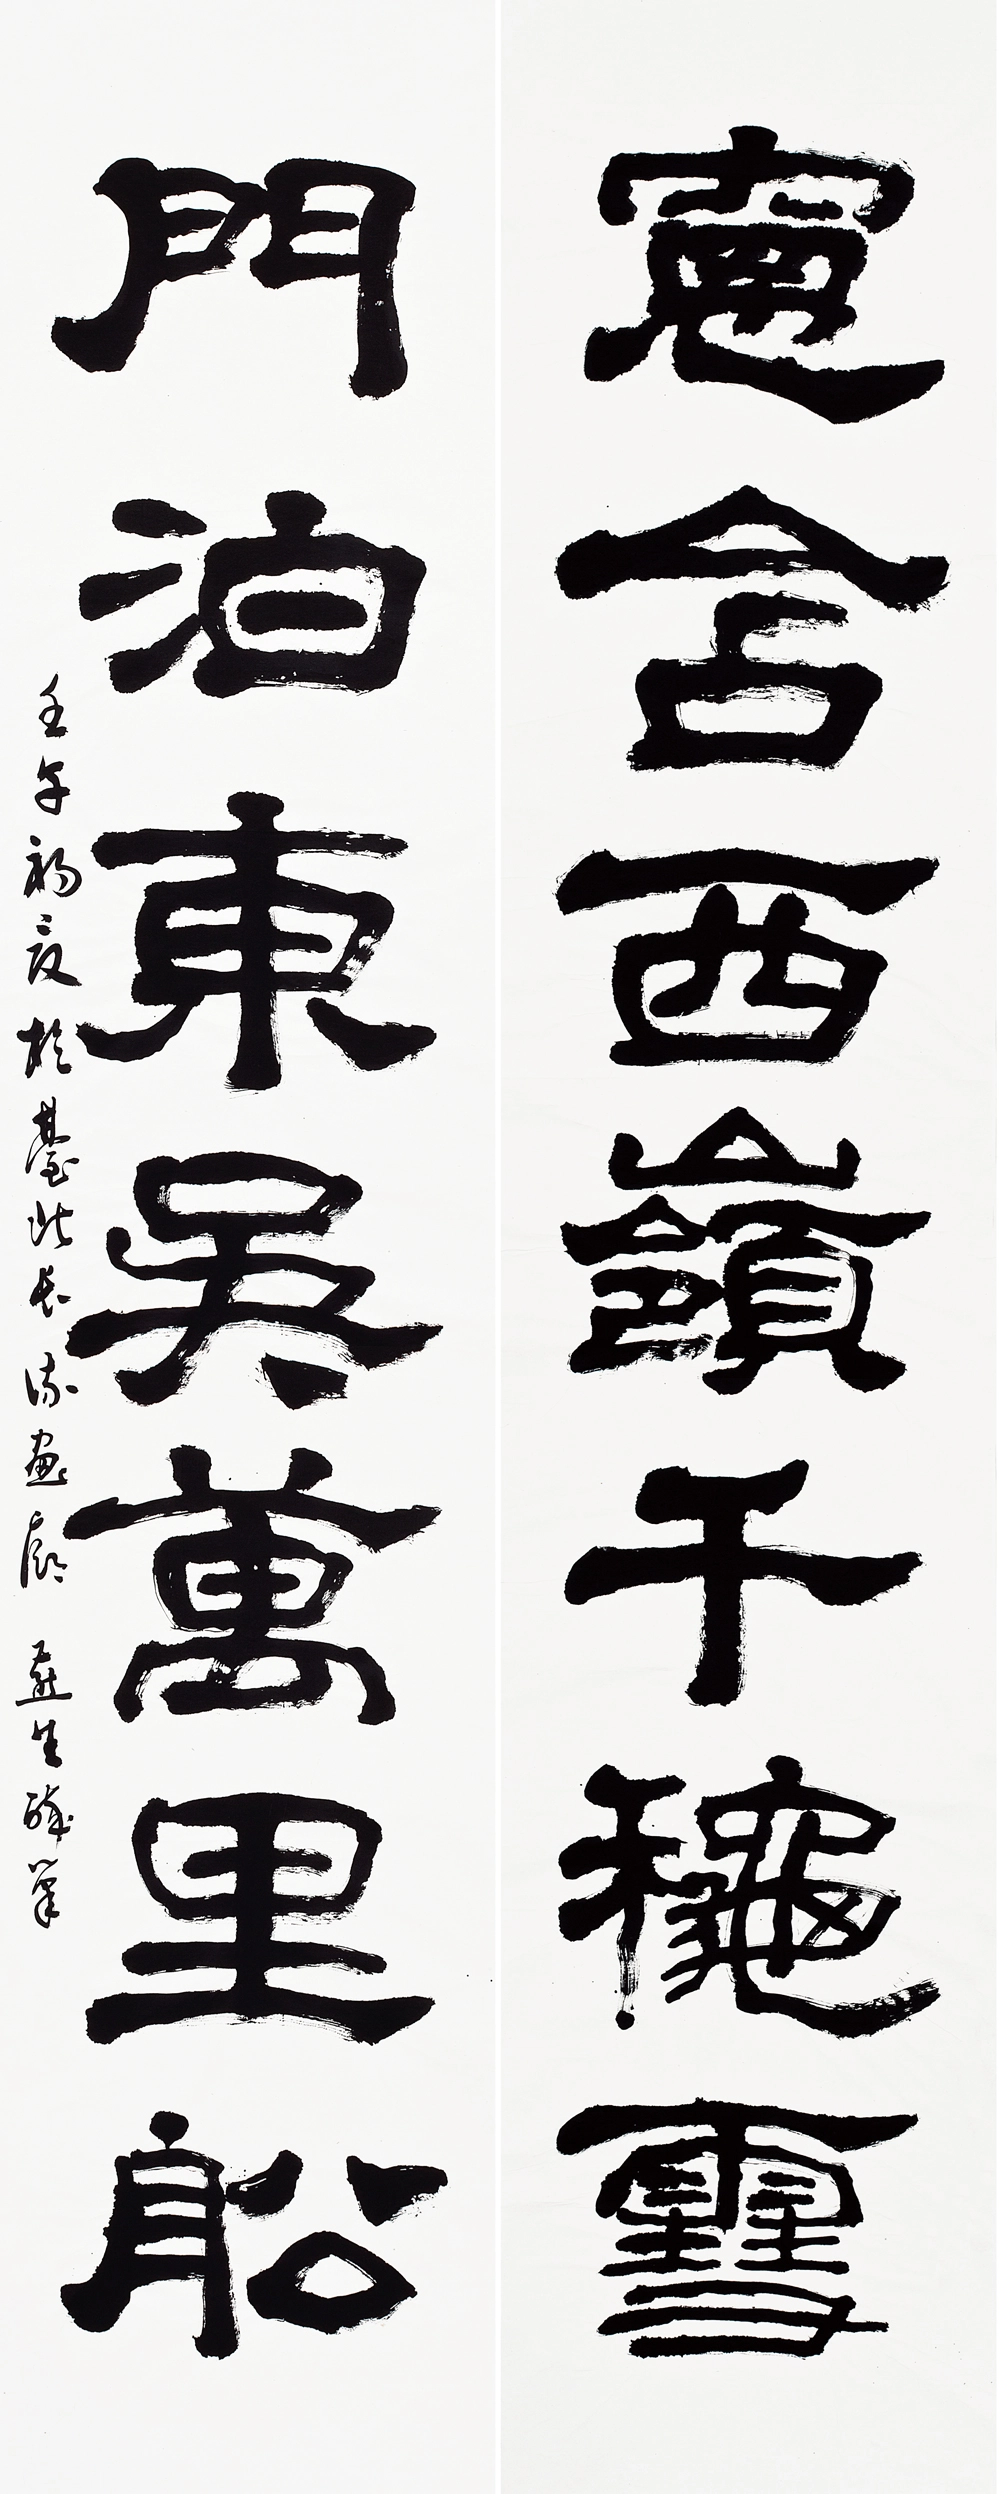 窻含西嶺千秋雪
門泊東吳萬里船
壬午初夏於臺北長流畫廊 燕生醉筆